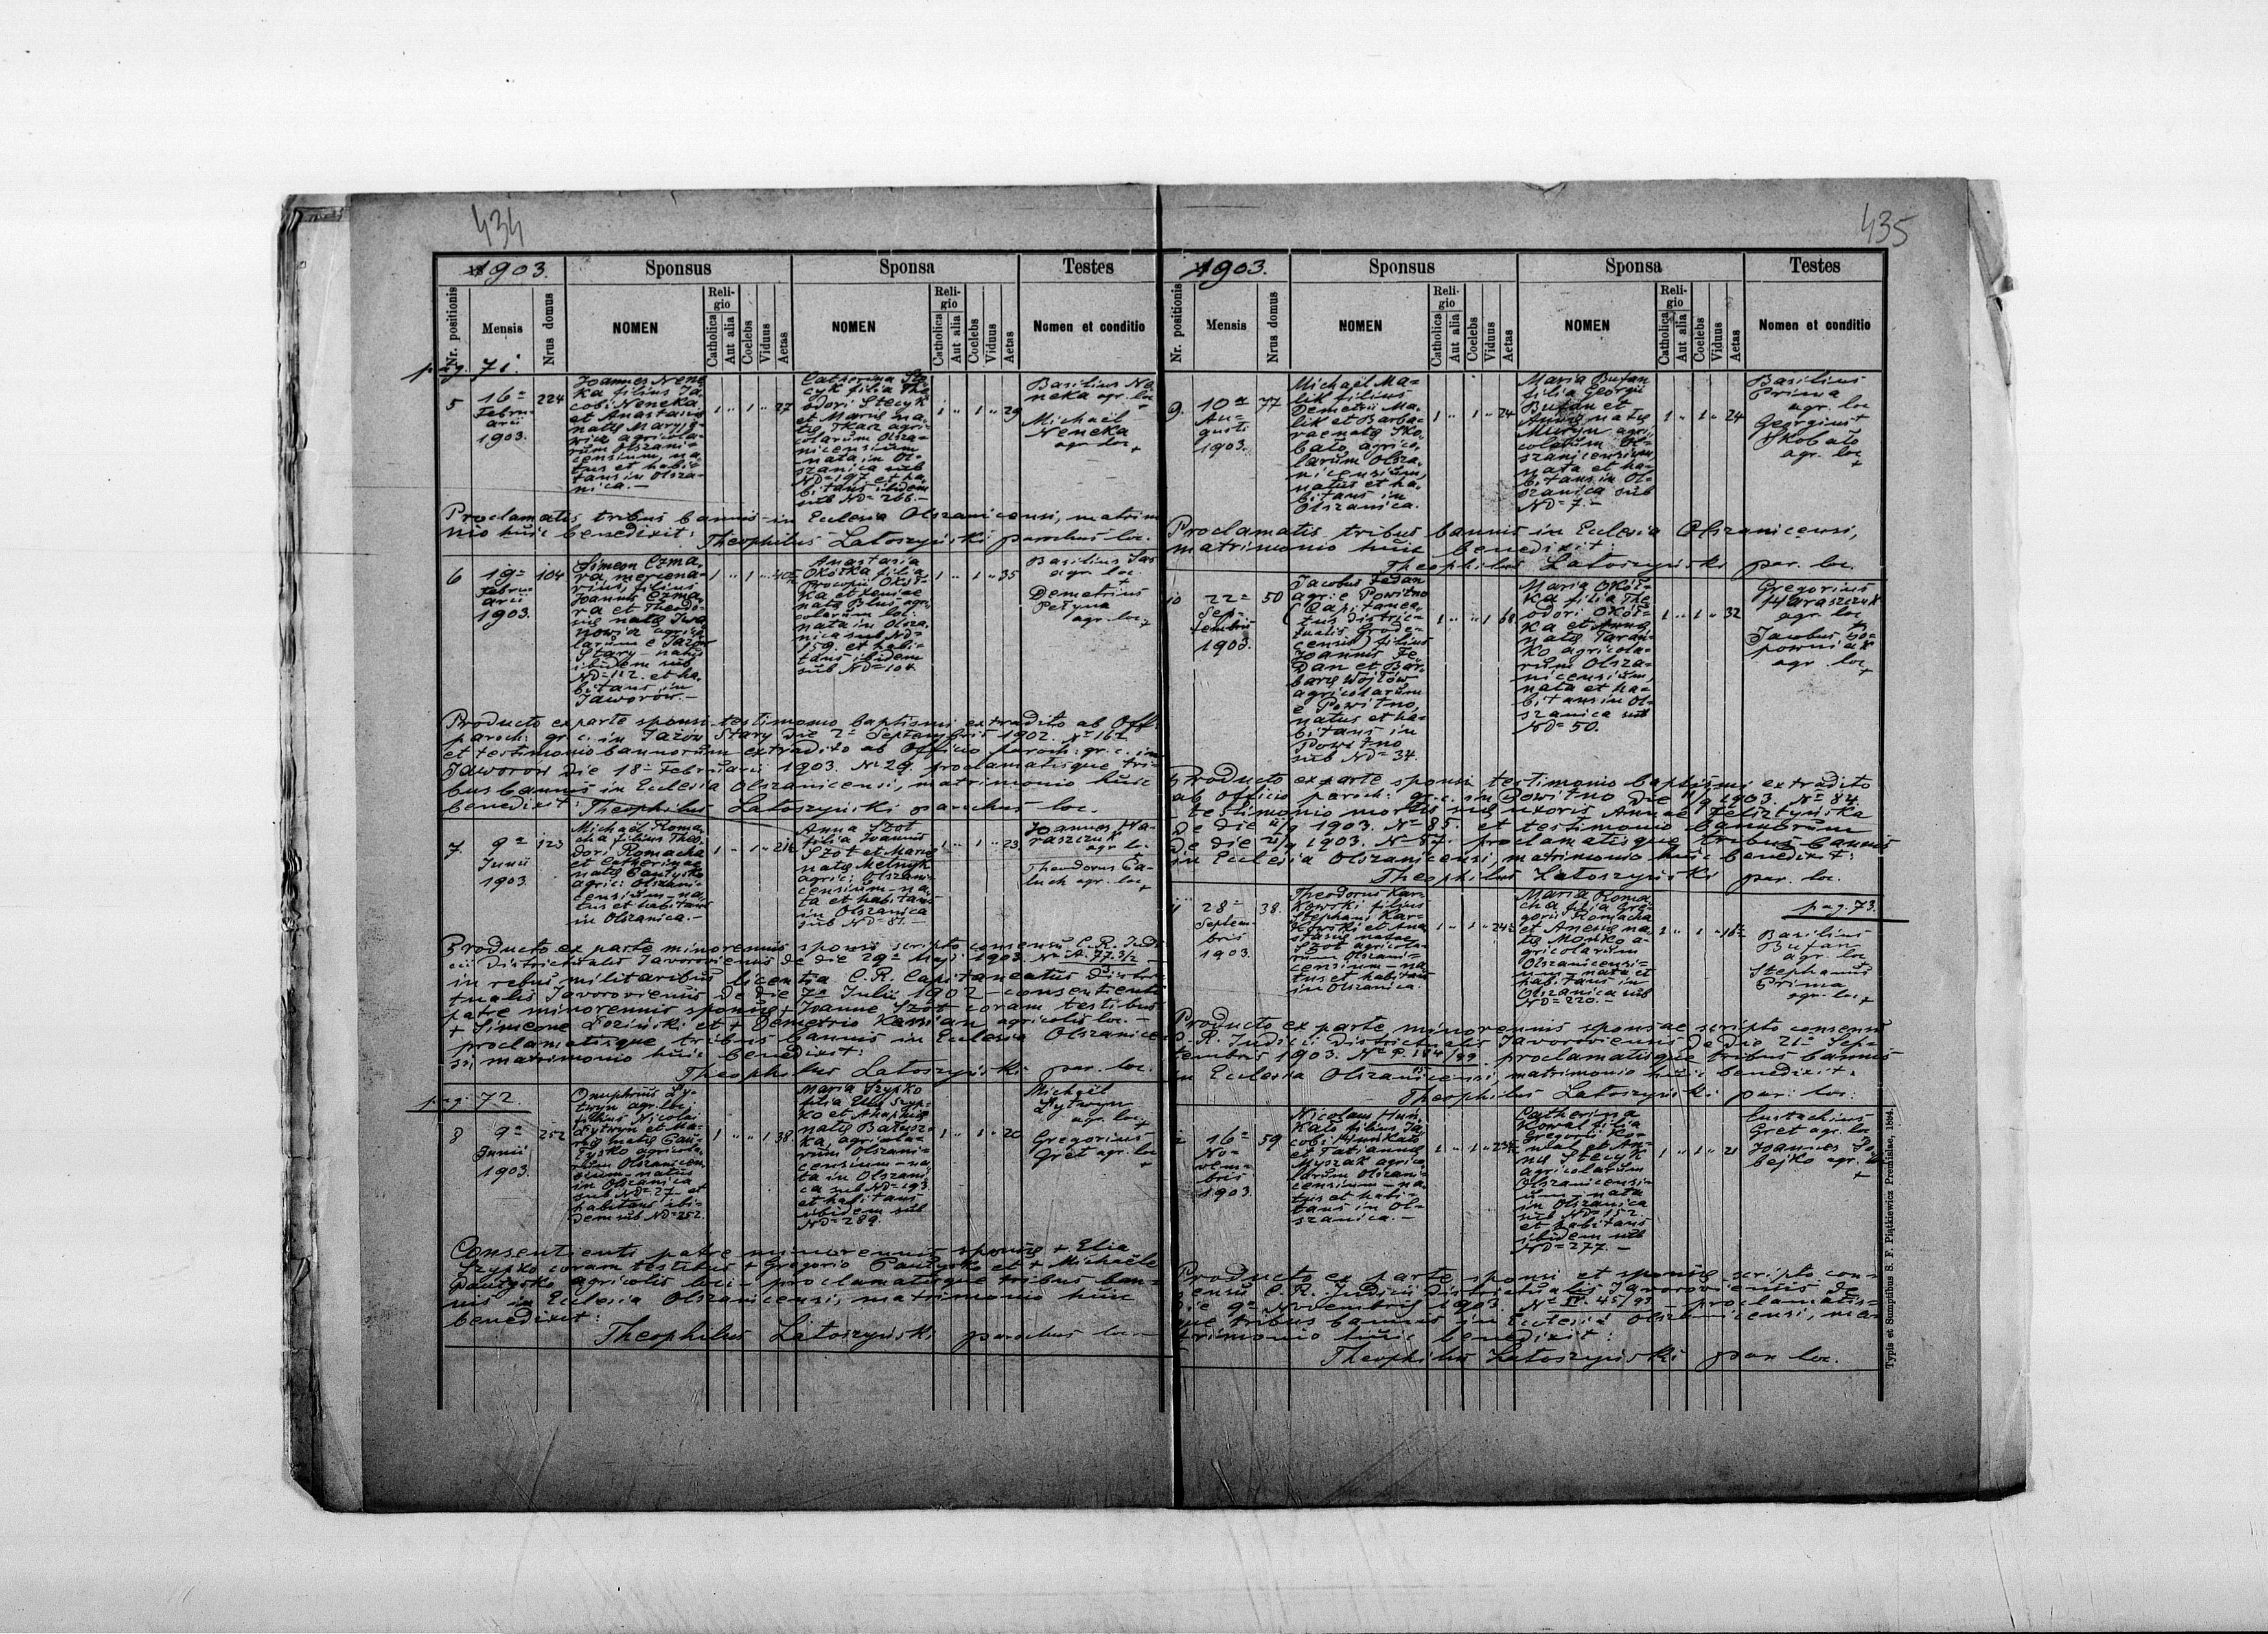 434
1903.
Sponsus
Sponsa
Testes
Nr. positionis
Mensis
Nrus domus
NOMEN
Religio
Catholica
Aut alia
Coelebs
Viduus
Aetas
NOMEN
Religio
Catholica
Aut alia
Coelebs
Viduus
Aetas
Nomen et conditio
pag. 71.
5
16ª
Febru-
arii
1903.
224
Joannes Nene-
ka filius Ja-
cobi Neneka
et Anastasiae
natus et habi-
tans in Olsza-
nica.-
1 " 1 " 27
Catherina Ste-
cyk filia The-
odori Stecyk
et Mariae na-
tae Tkacz agri-
colarum Olsza-
nicensium
nata in Ol-
szanica sub
ND=197. et ha-
bitans ibidem
sub ND=266.-
1 " 1 " 29
Basilius Ne-
neka agr. loc
+
Michaël
Neneka
agr. loc.
+
Proclamatis tribus bannis in Eclesia Olszanicensi, matrimo
nio huic benedixit: Theophilus Latoszyński parochus loc.
6
19ª
Febru-
arii
1903.
104
Simeon Czma-
ra, mercena-
rius, filius
Joannis Czma-
ra et Theodo-
siae natae Iwa-
nowicz agrico-
larum e Jażów
Stary - natus
ibidem sub
ND=112. et ha-
bitans in
Jaworów.-
1 " 1 "
Anastasia
Okótka filia
Procopii Okót-
ka et Xeniae
natae Blus, agri-
colarum loc.
nata in Olsza-
nica sub ND=
159. et habi-
tans ibidem
sub ND=104.
1 " 1 " 35
Basilius Sas
agr. loc.
+
Demetrius
Petyna
agr. loc.
+
Producto ex parte sponsi testimonio baptismi extradito ab Off.
paroch: gr. c. in Jażów Stary die 2ª Septembris 1902. Nº 162
et testimonio bannorum extradito ab Officio paroch: gr. c. in
Jaworów die 18ª Februarii 1903. Nº 29. proclamatisque tri-
bus bannis in Eclesia Olszanicensi, matrimonio huic
benedixit: Theophilus Latoszyński parochus loc.
7.
9ª
Junii
1903.
123
Michaël Roma-
cha filius Theo-
dori Romacha
et Catherinae
natae Pautysko
agric: Olszani-
censium - na-
tus et habitans
in Olszanica.-
1 " 1 "
Anna Szot
filia Joannis
Szot et Mariae
natae Melnyk
agric: Olszani-
censium - na-
ta et habitans
in Olszanica
sub ND=81.-
1 " 1 " 23
Joannes Ha-
raszczuk
agr. loc.
+
Theodorus Ca-
luch agr. loc.
+
Producto ex parte minorennis sponsi scripto consensu C. R. Judi-
cii Districtualis Javoroviensis de die 29ª Maji 1903.
in rebus militaribus licentia C. R. Capitaneatus Distric-
tualis Javoroviensis de die 7ª Julii 1902 - consentienti
patre minorennis sponsae + Joanne Szot coram testibus
+ Simeone Łoziński et + Demetrio Kessian agricolis loc.-
proclamatisque tribus bannis in Eclesia Olszanicen-
si, matrimonio huic benedixit:
Theophilus Latoszyński par. loc.
pag. 72.
8
9ª
Junii
1903.
252
Onuphrius Ły-
twyn agr. loc.
filius Nicolai
Łytwyn et Ma-
riae natae Pau-
tysko agricola-
rum Olszanicen-
sium - natus
in Olszanica
sub ND=27. et
habitans ibi-
dem sub ND=252.
1 " " 1 38
Maria Szypko
filia Eliae Szyp-
ko et Ahaphiae
natae Batysz-
ka, agricola-
rum Olszani-
censium - na-
ta in Olszani-
ca sub ND=193.
et habitans
ibidem sub
ND=289.
1 " 1 " 20
Michaël
Łytwyn
agr. loc.
+
Gregorius
Gret agr. loc.
+
Consentienti patre minorennis sponsae + Elia
Szypko coram testibus + Gregorio Pautysko et + Michaële
Pautysko agricolis loci - proclamatisque tribus ban-
nis in Eclesia Olszanicensi, matrimonio huic
benedixit:
Theophilus Latoszyński parochus loc.-
435
1903.
Sponsus
Sponsa
Testes
Nr. positionis
Mensis
Nrus domus
NOMEN
Religio
Catholica
Aut alia
Coelebs
Viduus
Aetas
NOMEN
Religio
Catholica
Aut alia
Coelebs
Viduus
Aetas
Nomen et conditio
9.
10ª
Au-
gusti
1903.
77
Michaël Ma-
lik filius
Demetrii Ma-
lik et Barba-
rae natae Sko-
bało, agrico-
larum Olsza-
nicensium,
natus et ha-
bitans in
Olszanica.
1 " 1 " 24
Maria Bufan
filia Georgii
Bufan et
Annae natae
Muryn agri-
colarum Ol-
szanicensium
nata et ha-
bitans in Ol-
szanica sub
ND=7.-
1 " 1 " 24
Basilius
Prima
agr. loc
+
Georgius
Skobało
agr. loc.
+
Proclamatis tribus bannis in Eclesia Olszanicensi,
matrimonio huic benedixit:
Theophilus Latoszyński par. loc.
10
22ª
Sep-
tembris
1903.
50
Jacobus Fedan
agr. e Powitno
(Capitanea-
tus distric-
tualis Grode-
censis) filius
Joannis Fe-
dan et Bar-
barae Wojtów
agricolarum
e Powitno,
natus et ha-
bitans in
Powitno
sub ND=34.
1 " " 1 68
Maria Okót-
ka filia The-
odori Okót-
ka et Annae
natae Taran-
ko agricola-
rum Olsza-
nicensium,
nata et ha-
bitans in Ol-
szanica sub
ND=50.
1 " 1 " 32
Gregorius
Haraszczuk
agr. loc
+
Jacobus So-
powniak
agr. loc.
+
Producto ex parte sponsi testimonio baptismi extradito
ab Officio paroch: gr. c. in Powitno die 11/9 1903. Nº 84.
testimonio mortis uxoris Annae
de die 11/9 1903. Nº 85. et testimonio bannorum
de die 21/9 1903. Nº 87. proclamatisque tribus bannis
in Eclesia Olszanicensi matrimonio huic benedixit:
Theophilus Latoszyński par. loc.
11
28ª
Septem-
bris
1903.
38.
Theodorus Kar-
kowski filius
Stephani Kar-
kowski et Ana-
stasiae natae
Szot agricola-
rum Olszani-
censium - na-
tus et habitans
in Olszanica.
1 " 1 "
Maria Roma-
cha filia Gre-
gorii Romacha
et Anenae na-
tae Monko a-
gricolarum
Olszanicensi-
um - nata et
habitans in
Olszanica sub
ND=220.-
1 " 1 "
pag. 73.
Basilius
Bufan
agr. loc
+
Stephanus
Prima
agr. loc.
+
Producto ex parte minorennis sponsae scripto consensu
C. R. Judicii Districtualis Javoroviensis de die 21ª Sep-
tembris 1903. Nº P. 184/99. proclamatisque tribus bannis
in Eclesia Olszanicensi, matrimonio huic benedixit.
Theophilus Latoszyński par: loc:
12
16ª
No-
vem-
bris
1903.
59
Nicolaus Huń-
kało filius Ja-
cobi Huńkało
et Tatiannae
Myszak agrico-
larum Olszani-
censium - na-
tus et habi-
tans in Ol-
szanica.-
1 " 1 "
Catherina
Kowal filia
Gregorii Ko-
wal et An-
nae Stecyk
agricolarum
Olszanicensi-
um - nata
in Olszanica
sub ND=152.
et habitans
ibidem sub
ND=277.-
1 " 1 " 21
Eustachius
Gret agr. loc
+
Joannes So-
bejko agr. loc
+
Producto ex parte sponsi et sponsae scripto con-
sensu C. R. Judicii Districtualis Javoroviensis de
die 9ª Novembris 1903. Nº IV. 45/93 - proclamatis-
que tribus bannis in Eclesia Olszanicensi, ma-
trimonio huic benedixit:
Theophilus Latoszyński par. loc.
Typis et Sumptibus S. F. Piątkiewicz Premisliae, 1894.